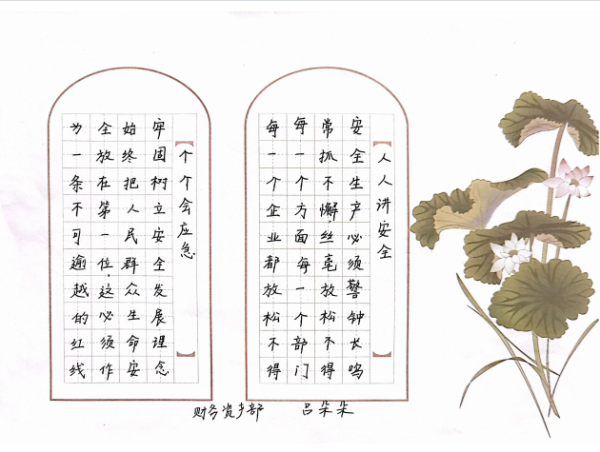 人人讲安全
安全生产必须警钟长鸣
常抓不懈.丝毫放松不得
每一个方面每一个部门
每一个企业都放松不得
个个会应急
牢固树立安全发展理念
始终把人民群众生命安
全放在第一位.这必须作
为一条不可逾越的红线
财务资产部 吕朵朵